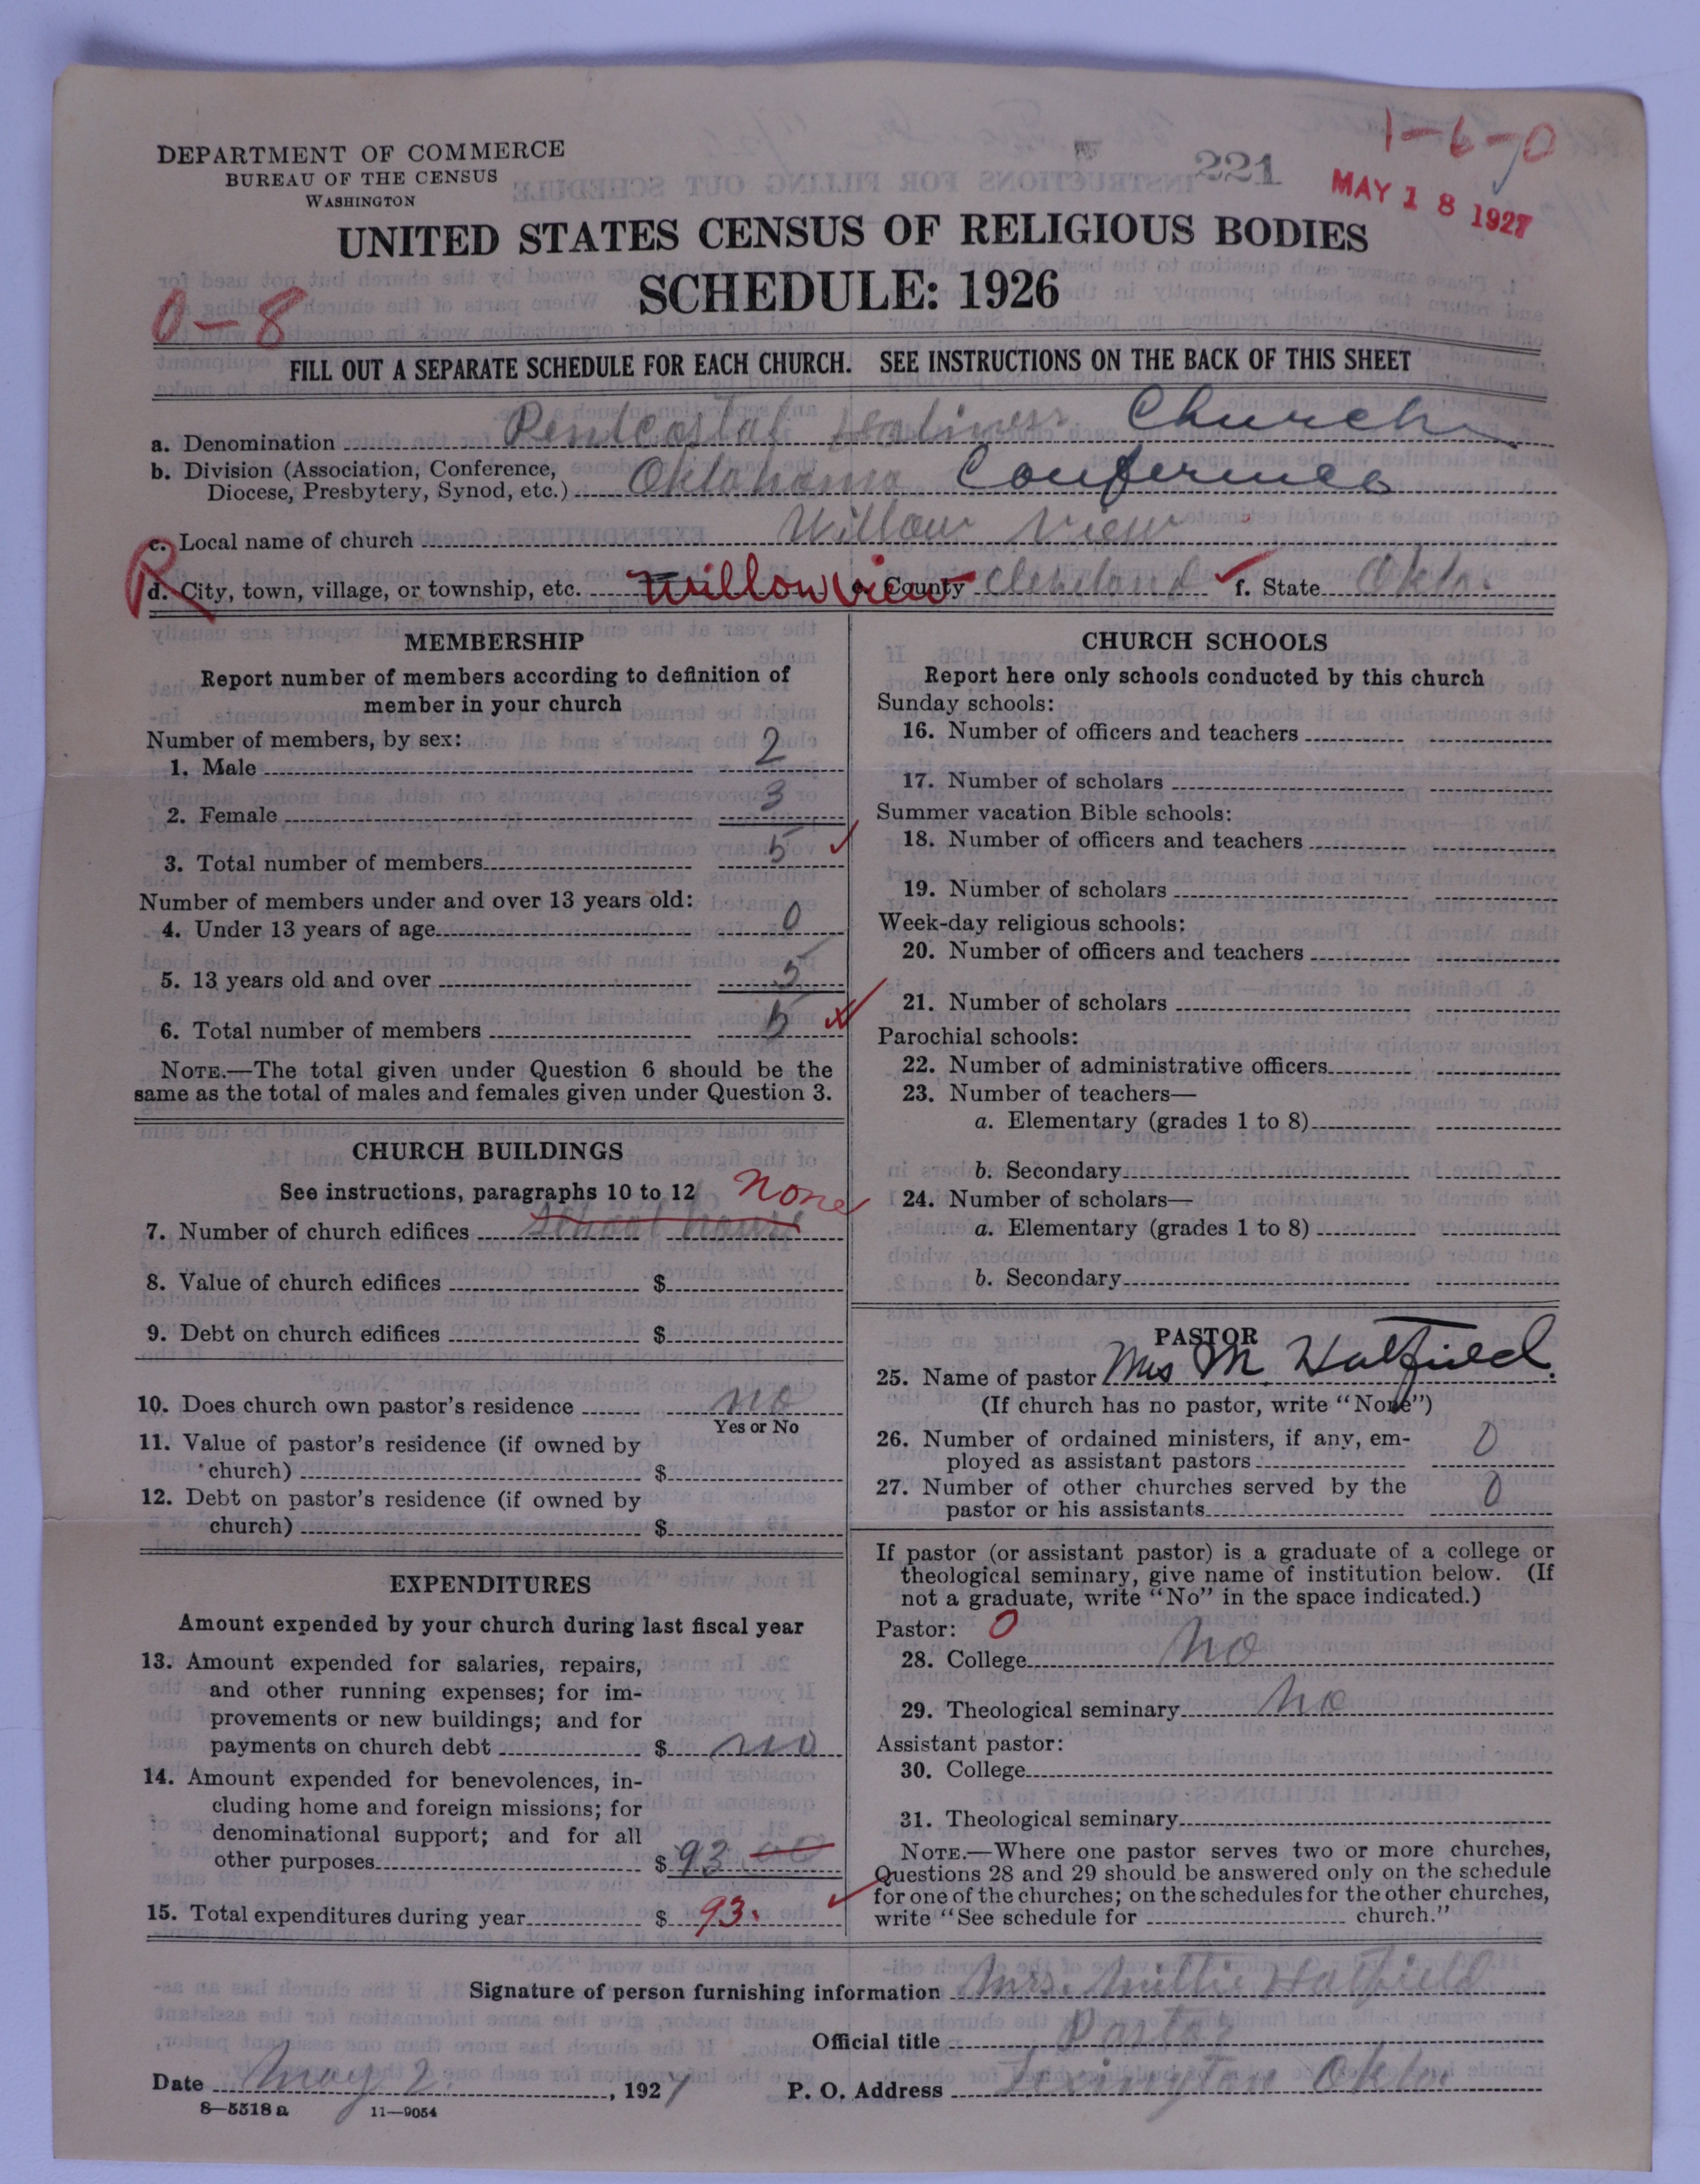 1-6-0
DEPARTMENT OF COMMERCE
BUREAU OF THE CENSUS
WASHINGTON
221
MAY 18 1927
UNITED STATES CENSUS OF RELIGIOUS BODIES
SCHEDULE: 1926
0-8
FILL OUT A SEPARATE SCHEDULE FOR EACH CHURCH. SEE INSTRUCTIONS ON THE BACK OF THIS SHEET
a. Denomination Pentcostal Holiness Church
b. Division (Association, Conference,
Diocese, Presbytery, Synod, etc.) Oklahoma Conference
c. Local name of church Willow View
R d. City, town, village, or township, etc. Willow View e. County Cleveland f. State Okla.
MEMBERSHIP
Report number of members according to definition of
member in your church
Number of members, by sex:
1. Male 2
2. Female 3
3. Total number of members 5
Number of members under and over 13 years old:
4. Under 13 years of age 0
5. 13 years old and over 5
6. Total number of members 5
NOTE.—The total given under Question 6 should be the
same as the total of males and females given under Question 3.
CHURCH BUILDINGS
See instructions, paragraphs 10 to 12 None
7. Number of church edifices School house
8. Value of church edifices $
9. Debt on church edifices $
10. Does church own pastor's residence no
Yes or No
11. Value of pastor's residence (if owned by
church) $
12. Debt on pastor's residence (if owned by
church) $
EXPENDITURES
Amount expended by your church during last fiscal year
13. Amount expended for salaries, repairs,
and other running expenses; for im-
provements or new buildings; and for
payments on church debt $ no
14. Amount expended for benevolences, in-
cluding home and foreign missions; for
denominational support; and for all
other purposes $ 93 00
15. Total expenditures during year $ 93.
CHURCH SCHOOLS
Report here only schools conducted by this church
Sunday schools:
16. Number of officers and teachers
17. Number of scholars
Summer vacation Bible schools:
18. Number of officers and teachers
19. Number of scholars
Week-day religious schools:
20. Number of officers and teachers
21. Number of scholars
Parochial schools:
22. Number of administrative officers
23. Number of teachers—
a. Elementary (grades 1 to 8)
b. Secondary
24. Number of scholars—
a. Elementary (grades 1 to 8)
b. Secondary
PASTOR
25. Name of pastor Mrs M. Hatfield.
(If church has no pastor, write "None")
26. Number of ordained ministers, if any, em-
ployed as assistant pastors 0
27. Number of other churches served by the
pastor or his assistants 0
If pastor (or assistant pastor) is a graduate of a college or
theological seminary, give name of institution below. (If
not a graduate, write "No" in the space indicated.)
Pastor: 0
28. College No
29. Theological seminary No
Assistant pastor:
30. College
31. Theological seminary
NOTE.—Where one pastor serves two or more churches,
Questions 28 and 29 should be answered only on the schedule
for one of the churches; on the schedules for the other churches,
write "See schedule for church."
Signature of person furnishing information Mrs. Millie Hatfield
Official title Pastor
Date May 2, 1927 P. O. Address Lexington Okla.
8—5518a 11—9054